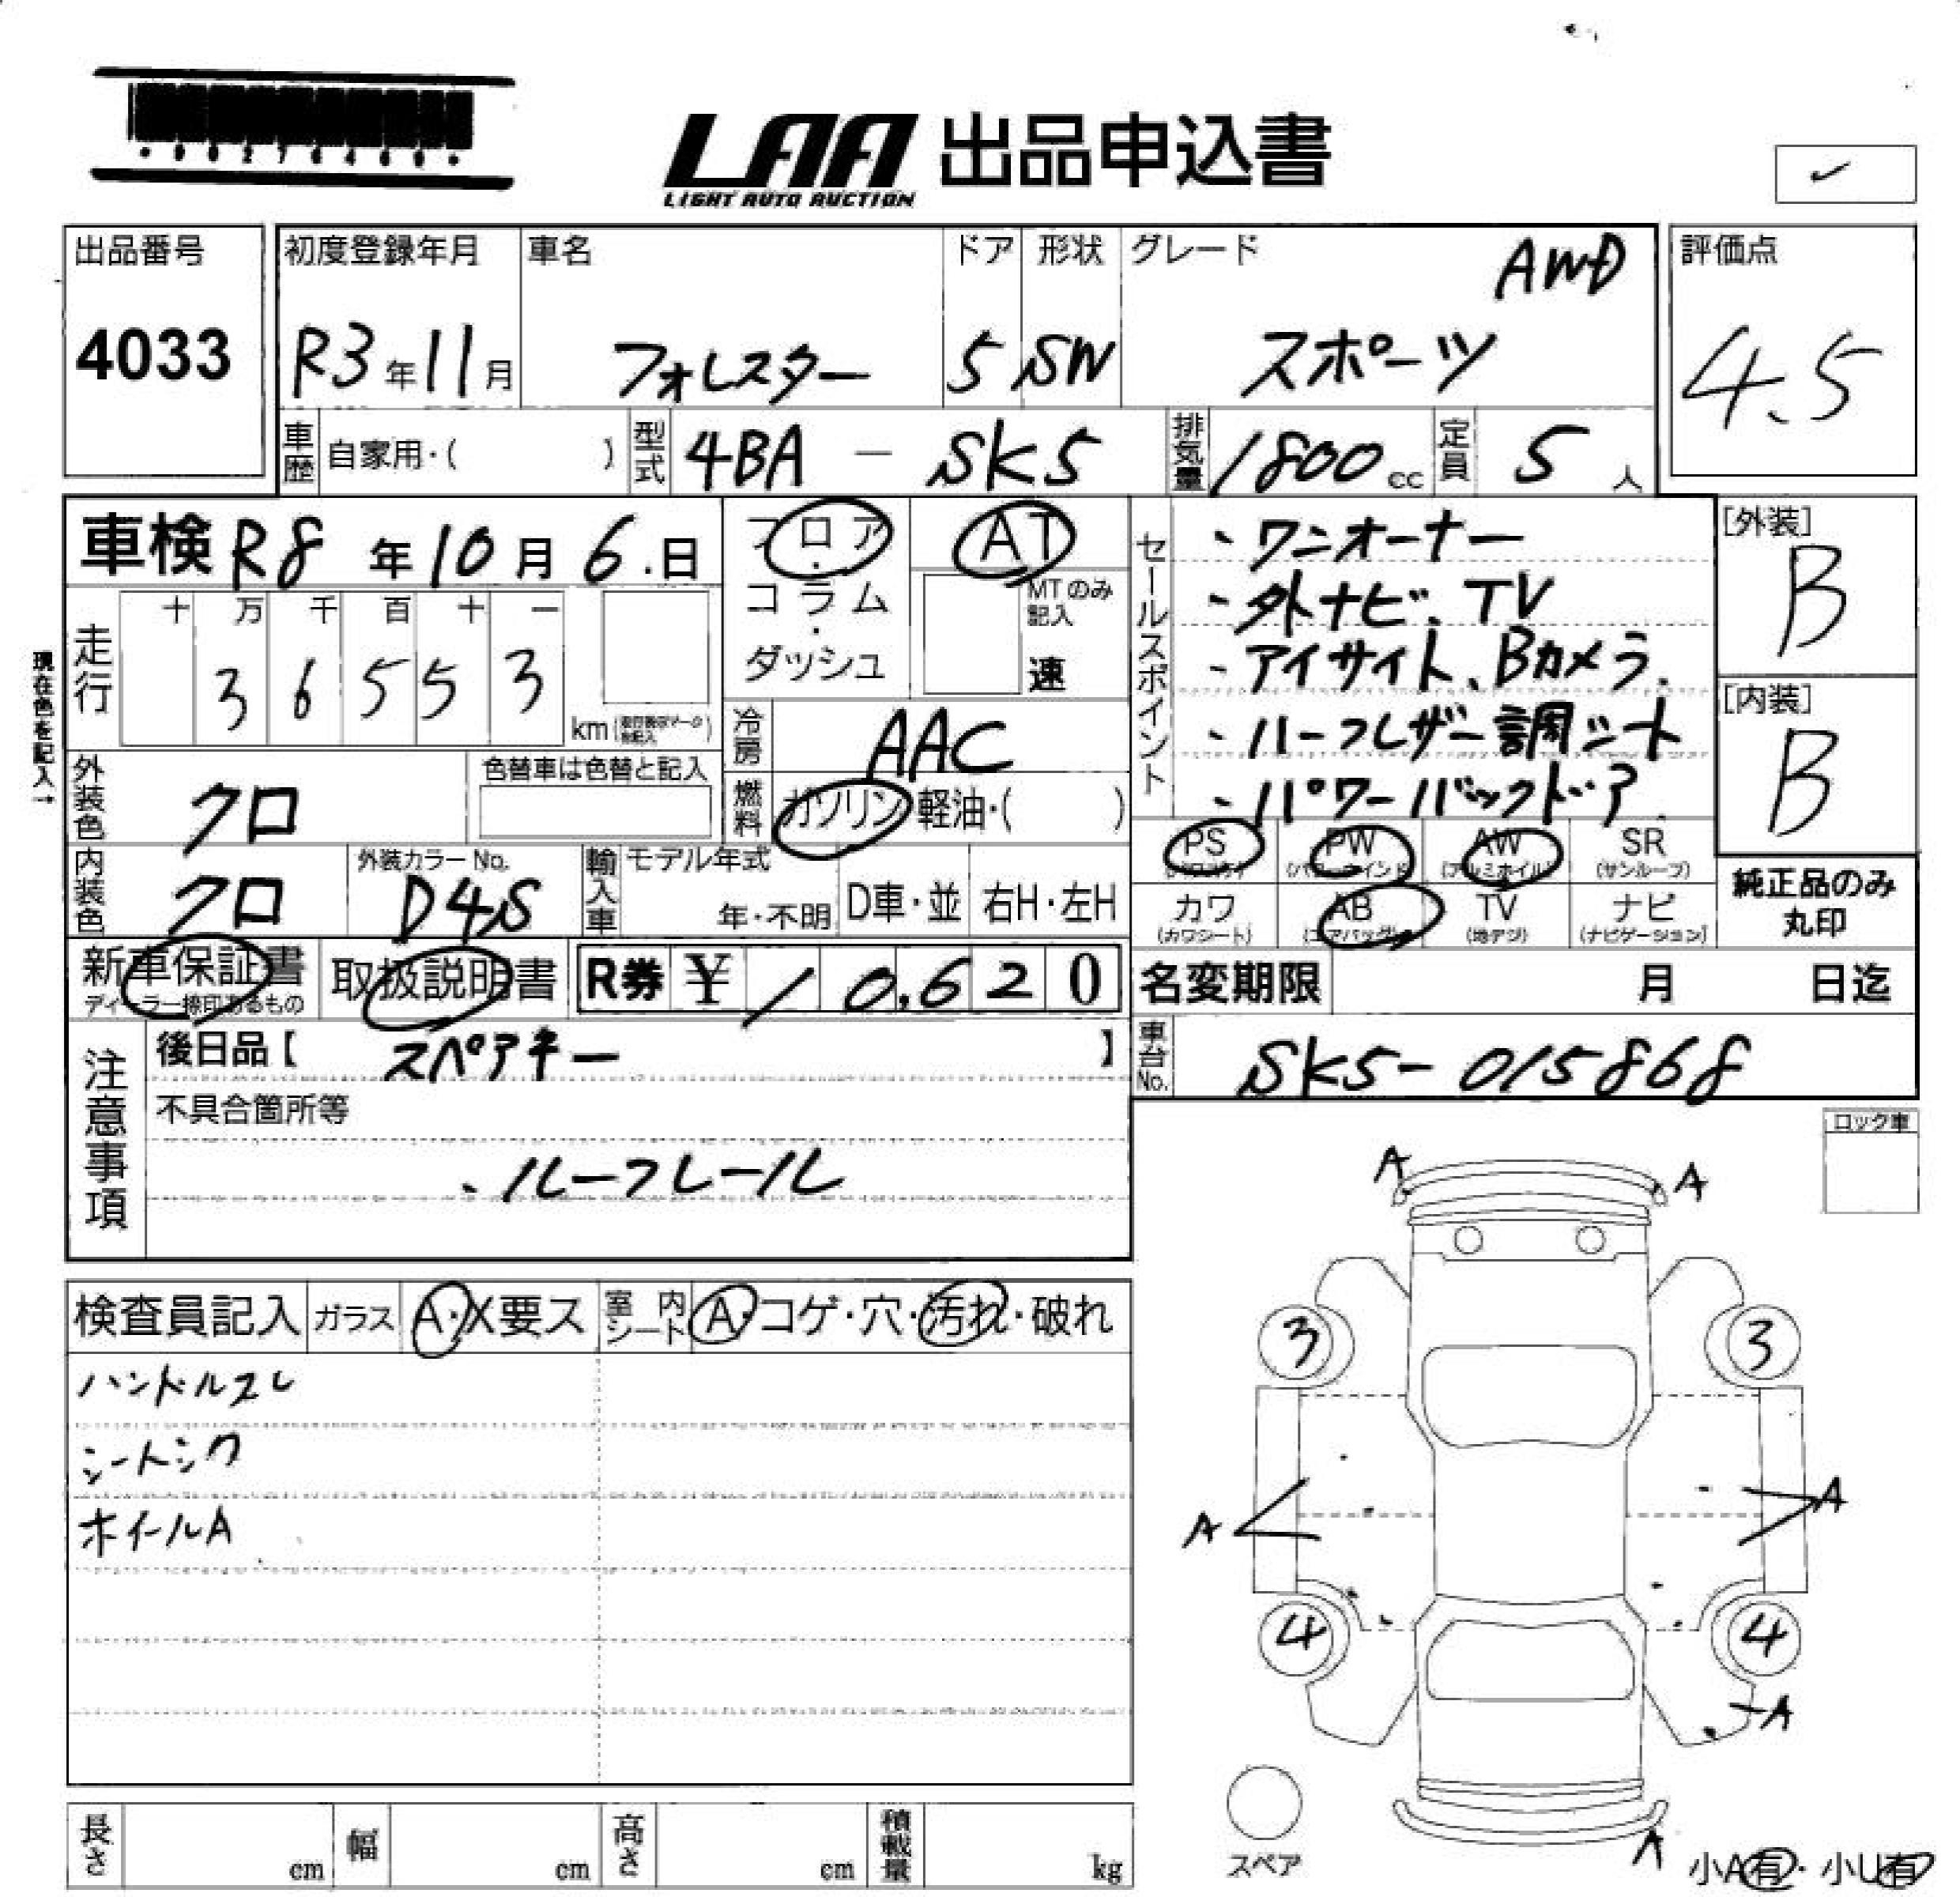 LAA 出品申込書
LIGHT AUTO AUCTION
出品番号
4033
初度登録年月
R3年11月
車名
フォレスター
ドア
5
形状
SW
グレード
AWD
スポーツ
評価点
4.5
車歴 自家用・( )
型式 4BA - SK5
排気量 1800cc
定員 5人
車検 R8年10月6.日
フロア・コラム・ダッシュ
AT
MTのみ記入
速
セールスポイント
・ワンオーナー
・外ナビ、TV
・アイサイト、Bカメラ.
・ハーフレザー調シート
・パワーバックドア
[外装]
B
[内装]
B
現在色を記入→
走行
十 万 千 百 十 一
3 6 5 5 3
km
冷房 AAC
燃料 ガソリン・軽油・( )
外装色 クロ
色替車は色替と記入
内装色 クロ
外装カラーNo.
D4S
輸入車 モデル年式
年・不明
D車・並
右H・左H
PS
PW (パワーウインド)
AW (アルミホイル)
SR (サンルーフ)
カワ (カワシート)
AB (エアバッグ)
TV (地デジ)
ナビ (ナビゲーション)
純正品のみ
丸印
新車保証書
取扱説明書
R券 ¥ 10,620
名変期限 月 日迄
車台No. SK5-015868
注意事項
後日品【 スペアキー 】
不具合箇所等
・ルーフレール
ロック車
検査員記入
ガラス A・X要ス
室内シート A・コゲ・穴・汚れ・破れ
ハンドルスレ
シートシワ
ホイールA
A A
3 3
A A
4 4
A
A
スペア
小A有・小U有
長さ cm
幅 cm
高さ cm
積載量 kg